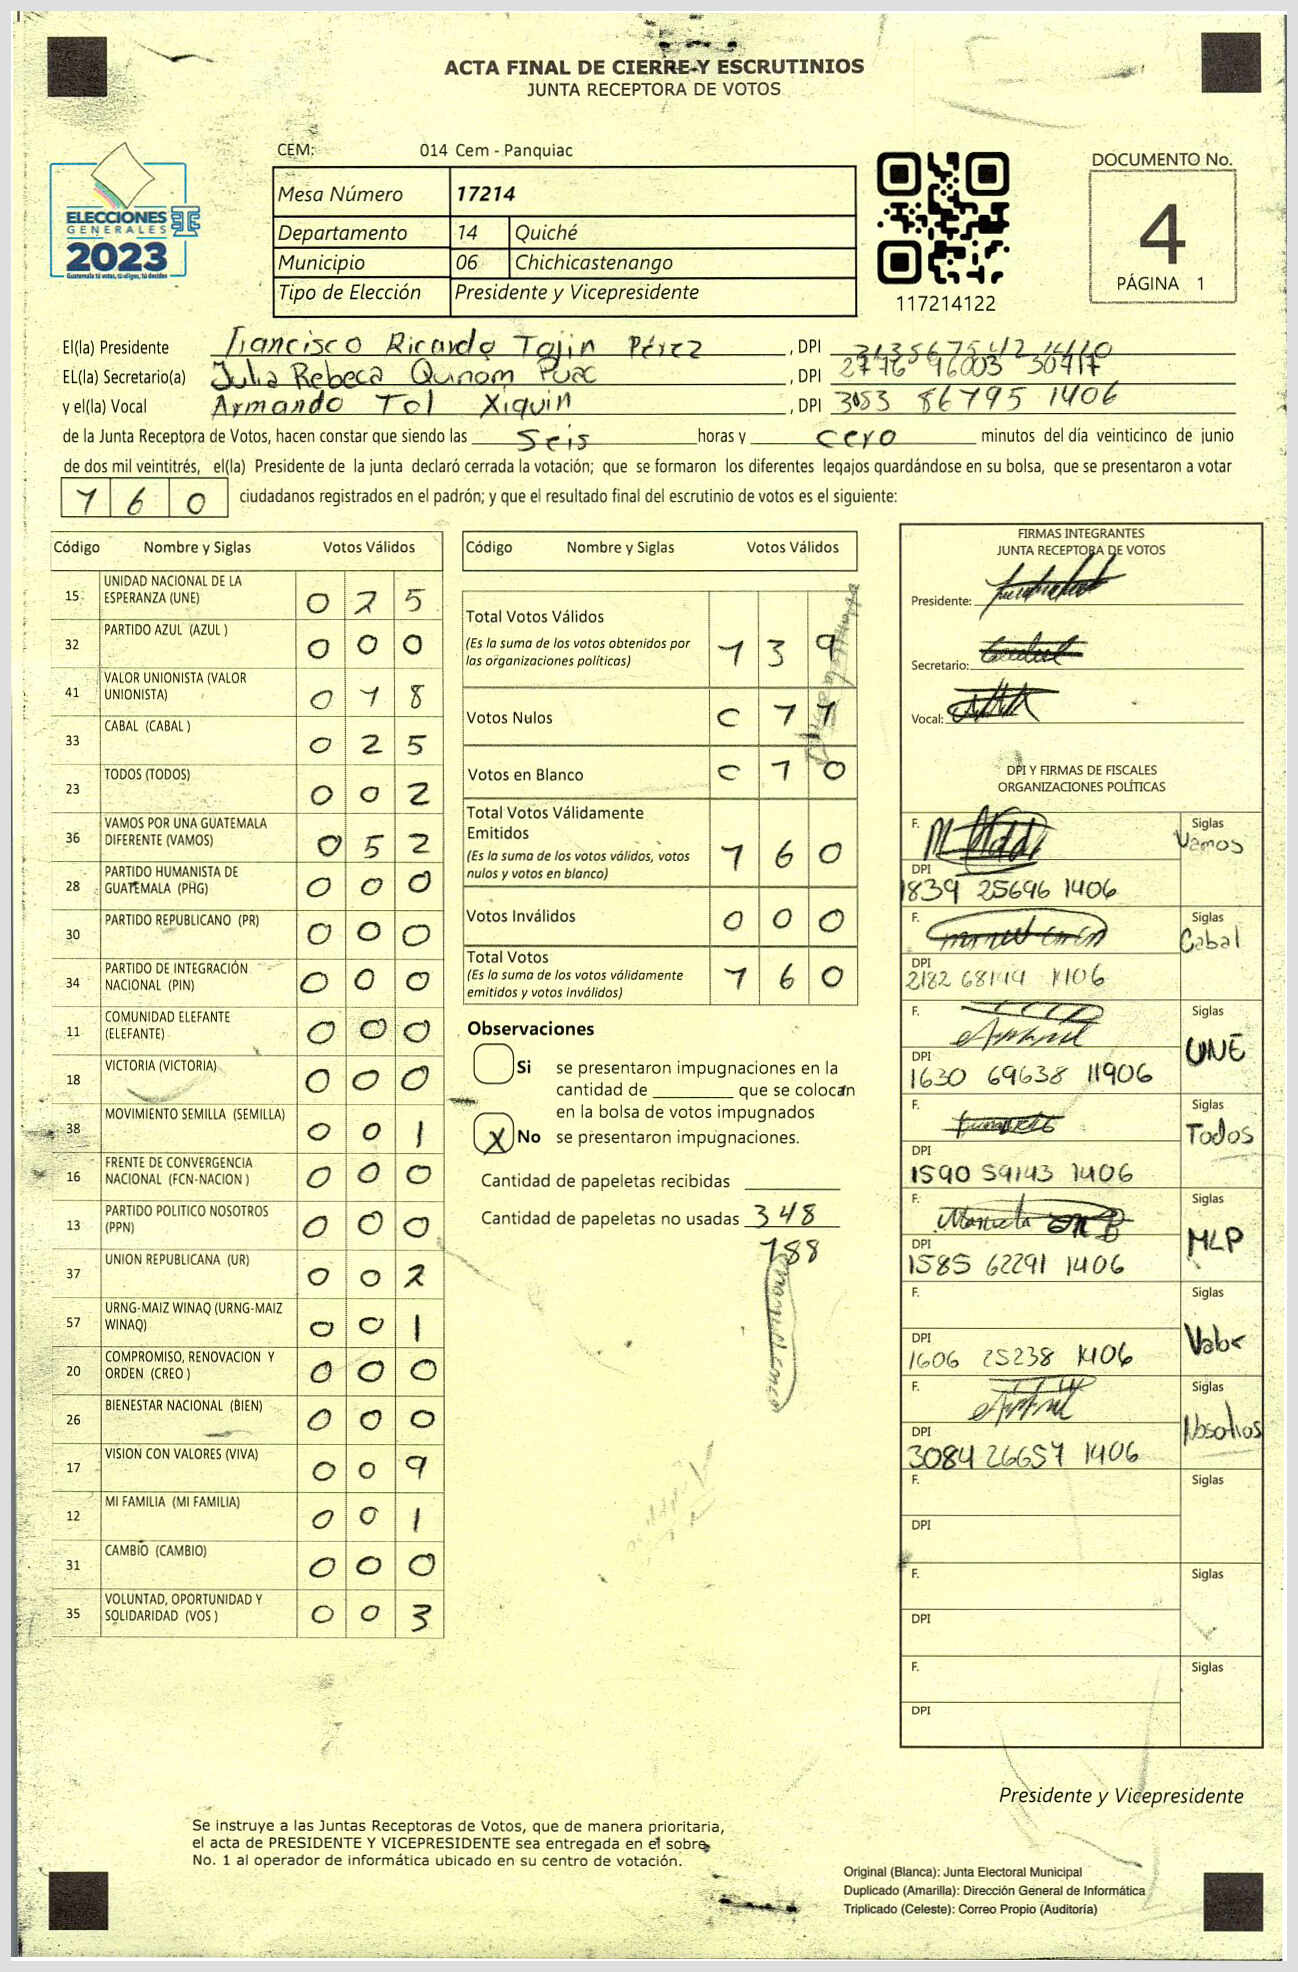 ACTA FINAL DE CIERRE Y ESCRUTINIOS
JUNTA RECEPTORA DE VOTOS
CEM: 014 Cem - Panquiac
ELECCIONES
GENERALES
2023
Guatemala tú votas, tú eliges, tú decides
Mesa Número 17214
Departamento 14 Quiché
Municipio 06 Chichicastenango
Tipo de Elección Presidente y Vicepresidente
117214122
DOCUMENTO No.
4
PÁGINA 1
El(la) Presidente Francisco Ricardo Tojin Pérez , DPI
EL(la) Secretario(a) Julia Rebeca Quinom Puac , DPI 2776 96003
y el(la) Vocal Armando Tol Xiquin , DPI 3053 86795 1406
de la Junta Receptora de Votos, hacen constar que siendo las seis horas y cero minutos del día veinticinco de junio
de dos mil veintitrés, el(la) Presidente de la junta declaró cerrada la votación; que se formaron los diferentes legajos guardándose en su bolsa, que se presentaron a votar
160 ciudadanos registrados en el padrón; y que el resultado final del escrutinio de votos es el siguiente:
Código Nombre y Siglas Votos Válidos
15 UNIDAD NACIONAL DE LA ESPERANZA (UNE) 0 2 5
32 PARTIDO AZUL (AZUL ) 0 0 0
41 VALOR UNIONISTA (VALOR UNIONISTA) 0 1 8
33 CABAL (CABAL ) 0 2 5
23 TODOS (TODOS) 0 0 2
36 VAMOS POR UNA GUATEMALA DIFERENTE (VAMOS) 0 5 2
28 PARTIDO HUMANISTA DE GUATEMALA (PHG) 0 0 0
30 PARTIDO REPUBLICANO (PR) 0 0 0
34 PARTIDO DE INTEGRACIÓN NACIONAL (PIN) 0 0 0
11 COMUNIDAD ELEFANTE (ELEFANTE) 0 0 0
18 VICTORIA (VICTORIA) 0 0 0
38 MOVIMIENTO SEMILLA (SEMILLA) 0 0 1
16 FRENTE DE CONVERGENCIA NACIONAL (FCN-NACION ) 0 0 0
13 PARTIDO POLITICO NOSOTROS (PPN) 0 0 0
37 UNION REPUBLICANA (UR) 0 0 2
57 URNG-MAIZ WINAQ (URNG-MAIZ WINAQ) 0 0 1
20 COMPROMISO, RENOVACION Y ORDEN (CREO ) 0 0 0
26 BIENESTAR NACIONAL (BIEN) 0 0 0
17 VISION CON VALORES (VIVA) 0 0 9
12 MI FAMILIA (MI FAMILIA) 0 0 1
31 CAMBIO (CAMBIO) 0 0 0
35 VOLUNTAD, OPORTUNIDAD Y SOLIDARIDAD (VOS ) 0 0 3
Código Nombre y Siglas Votos Válidos
Total Votos Válidos 1 3 9
(Es la suma de los votos obtenidos por
las organizaciones políticas)
Votos Nulos 0 1 1
Votos en Blanco 0 1 0
Total Votos Válidamente
Emitidos 1 6 0
(Es la suma de los votos válidos, votos
nulos y votos en blanco)
Votos Inválidos 0 0 0
Total Votos 1 6 0
(Es la suma de los votos válidamente
emitidos y votos inválidos)
Observaciones
Si se presentaron impugnaciones en la
cantidad de ________ que se colocan
en la bolsa de votos impugnados
X No se presentaron impugnaciones.
Cantidad de papeletas recibidas
Cantidad de papeletas no usadas 348
188
FIRMAS INTEGRANTES
JUNTA RECEPTORA DE VOTOS
Presidente:
Secretario:
Vocal:
DPI Y FIRMAS DE FISCALES
ORGANIZACIONES POLÍTICAS
F. Siglas Vamos
DPI 1839 25696 1406
F. Siglas Cabal
DPI 2182 68144 1406
F. Siglas UNE
DPI 1630 69638 11906
F. Siglas Todos
DPI 1590 59143 1406
F. Siglas MLP
DPI 1585 62291 1406
F. Siglas Valor
DPI 1606 25238 1406
F. Siglas Nosotros
DPI 3084 26657 1406
F. Siglas
DPI
F. Siglas
DPI
F. Siglas
DPI
Presidente y Vicepresidente
Se instruye a las Juntas Receptoras de Votos, que de manera prioritaria,
el acta de PRESIDENTE Y VICEPRESIDENTE sea entregada en el sobre
No. 1 al operador de informática ubicado en su centro de votación.
Original (Blanca): Junta Electoral Municipal
Duplicado (Amarilla): Dirección General de Informática
Triplicado (Celeste): Correo Propio (Auditoría)